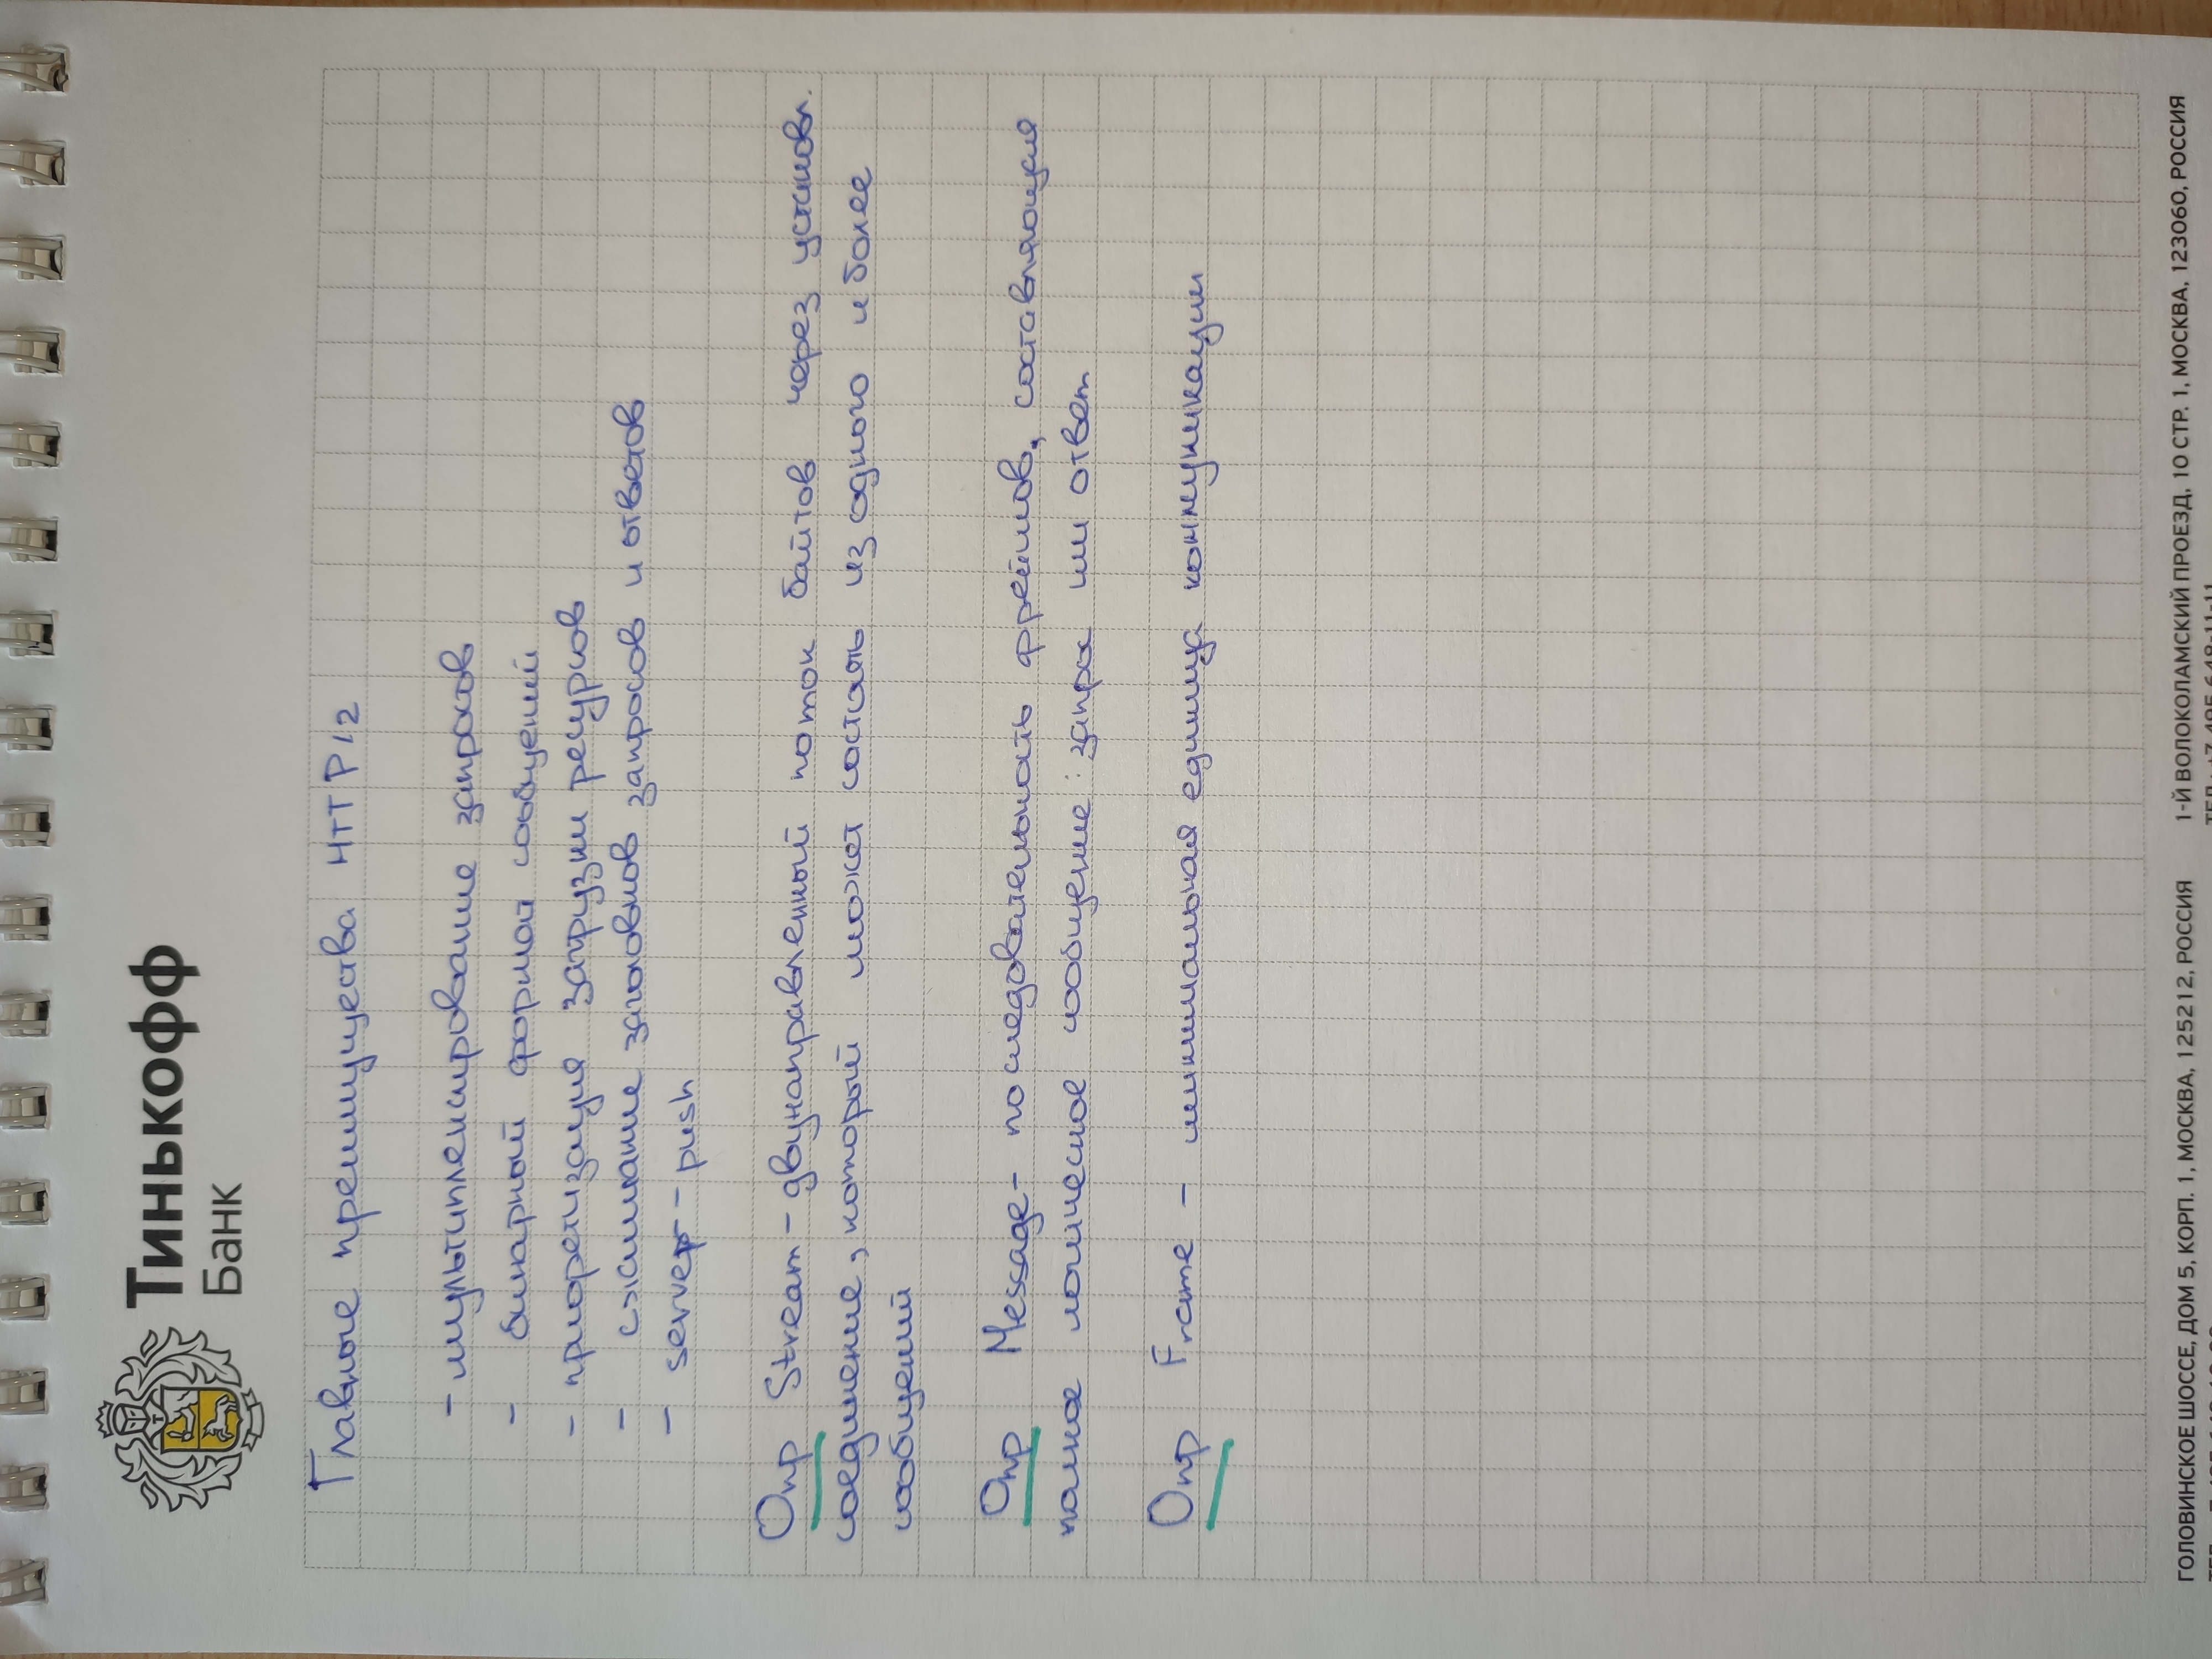 Тинькофф
Банк
Главные преимущества HTTP/2
- мультиплексирование запросов
- бинарный формат сообщений
- приоретизация загрузки ресурсов
- сжимание заголовков запросов и ответов
- server-push
Опр Stream - двунаправленный поток байтов через установл.
соединение, который может состоять из одного и более
сообщений
Опр Message - последовательность фреймов, составляющая
полное логическое сообщение: запрос или ответ
Опр Frame - минимальная единица коммуникации
ГОЛОВИНСКОЕ ШОССЕ, ДОМ 5, КОРП. 1, МОСКВА, 125212, РОССИЯ 1-Й ВОЛОКОЛАМСКИЙ ПРОЕЗД, 10 СТР. 1, МОСКВА, 123060, РОССИЯ
ТЕЛ.: +7 495 648-11-11